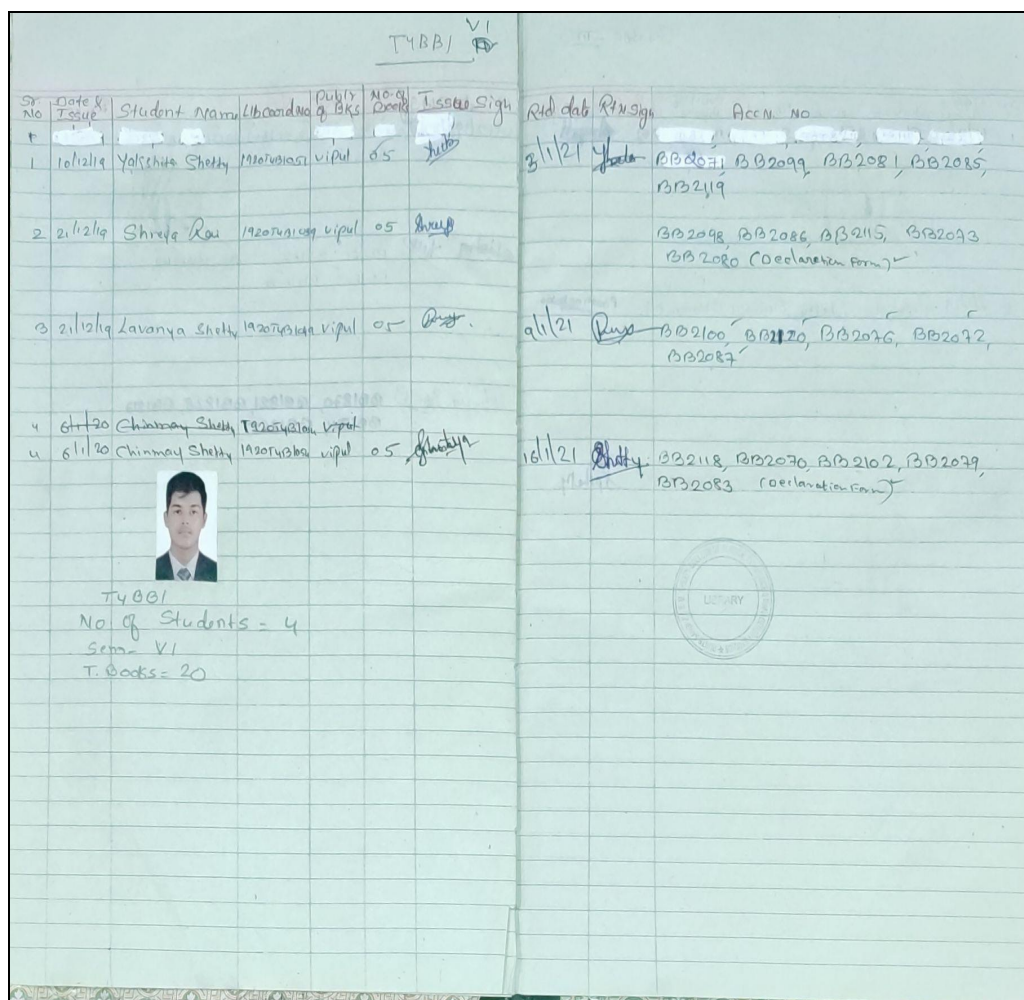 VI
TYBBI
Sr. No Date & Issue Student Name Lib card no Publr of BKS No. of Books Issue Sign Rtd date Rtn Sign Accn. No
1 10/12/19 Yakshita Shetty vipul 05 3/1/21 BB2071, BB2099, BB2081, BB2085,
BB2119
2 21/12/19 Shreya Rai vipul 05 BB2098, BB2086, BB2115, BB2073
BB2080 (Declaration Form)
3 21/12/19 Lavanya Shetty vipul 05 9/1/21 BB2100, BB2120, BB2076, BB2072,
BB2087
4 6/1/20 Chinmay Shetty vipul
4 6/1/20 Chinmay Shetty vipul 05 16/1/21 Shetty BB2118, BB2070, BB2102, BB2079,
BB2083 (Declaration Form)
TYBBI
No of Students = 4
Sem - VI
T. Books = 20
LIBRARY